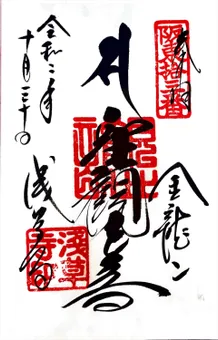 坂東拾三番
奉拝
金龍山
聖観世音
浅草寺
浅草寺印
令和二年
十月